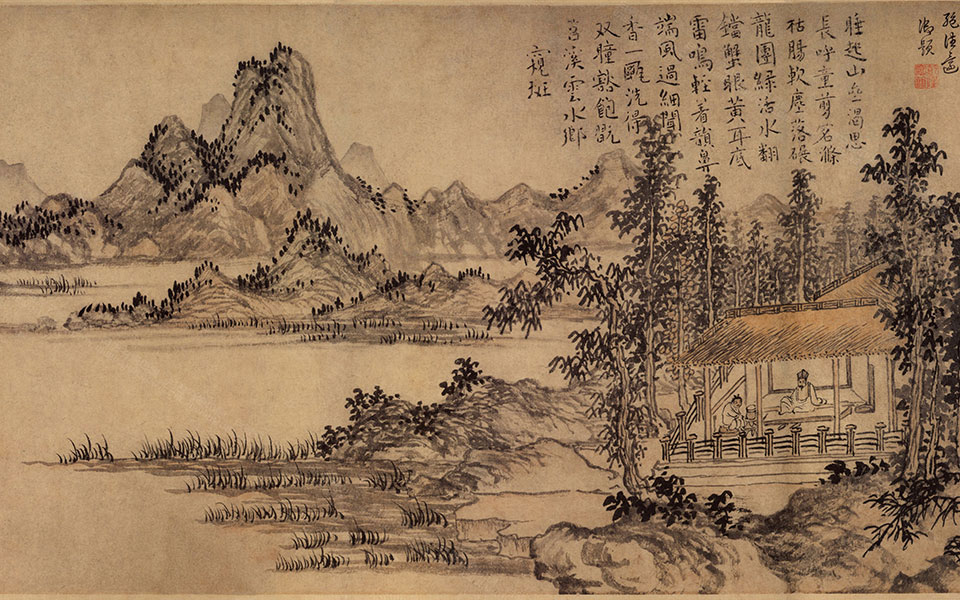 御題
睡起山斋渴思
長呼童剪茗滌
枯腸軟塵落碾
龍團綠活水翻
鐺蟹眼黃耳底
雷鳴輕着韻鼻
端風過細聞
香一甌洗得
双瞳豁飽翫
苕溪雲水鄉
窺斑